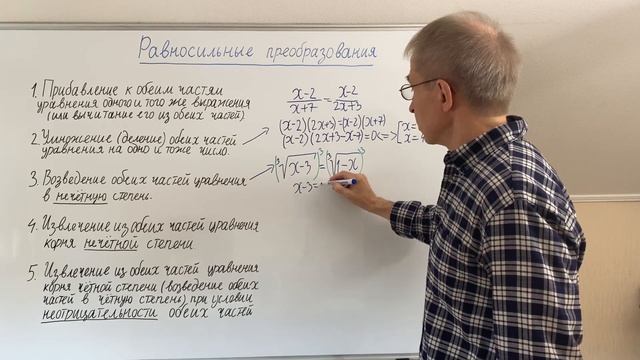 Равносильные преобразования
1. Прибавление к обеим частям
уравнения одного и того же выражения
(или вычитание его из обеих частей)
2. Умножение (деление) обеих частей
уравнения на одно и тоже число.
3. Возведение обеих частей уравнения
в нечётную степень.
4. Извлечение из обеих частей уравнения
корня нечётной степени
5. Извлечение из обеих частей уравнения
корня чётной степени (возведение обеих
частей в чётную степень) при условии
неотрицательности обеих частей
x-2/x+7 = x-2/2x+3
(x-2)(2x+3)=(x-2)(x+7)
(x-2)(2x+3-x-7)=0<=>[x= x=
(³√x-3)³=(³√1-x)³
x-3=